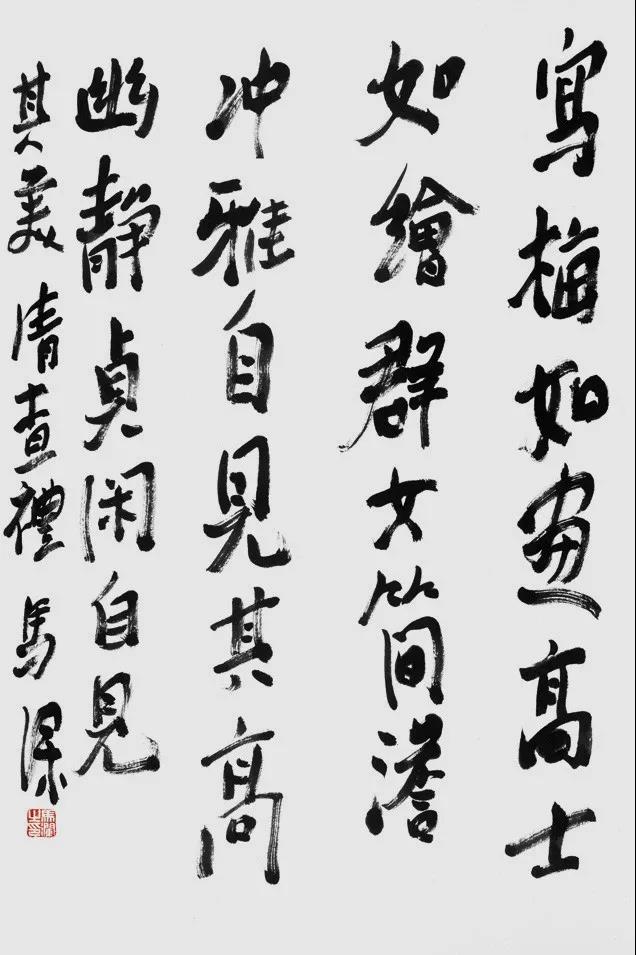 寫梅如畫高士
如繪群女簡澹
冲雅自見其高
幽靜貞闲自見
其美清查禮馬